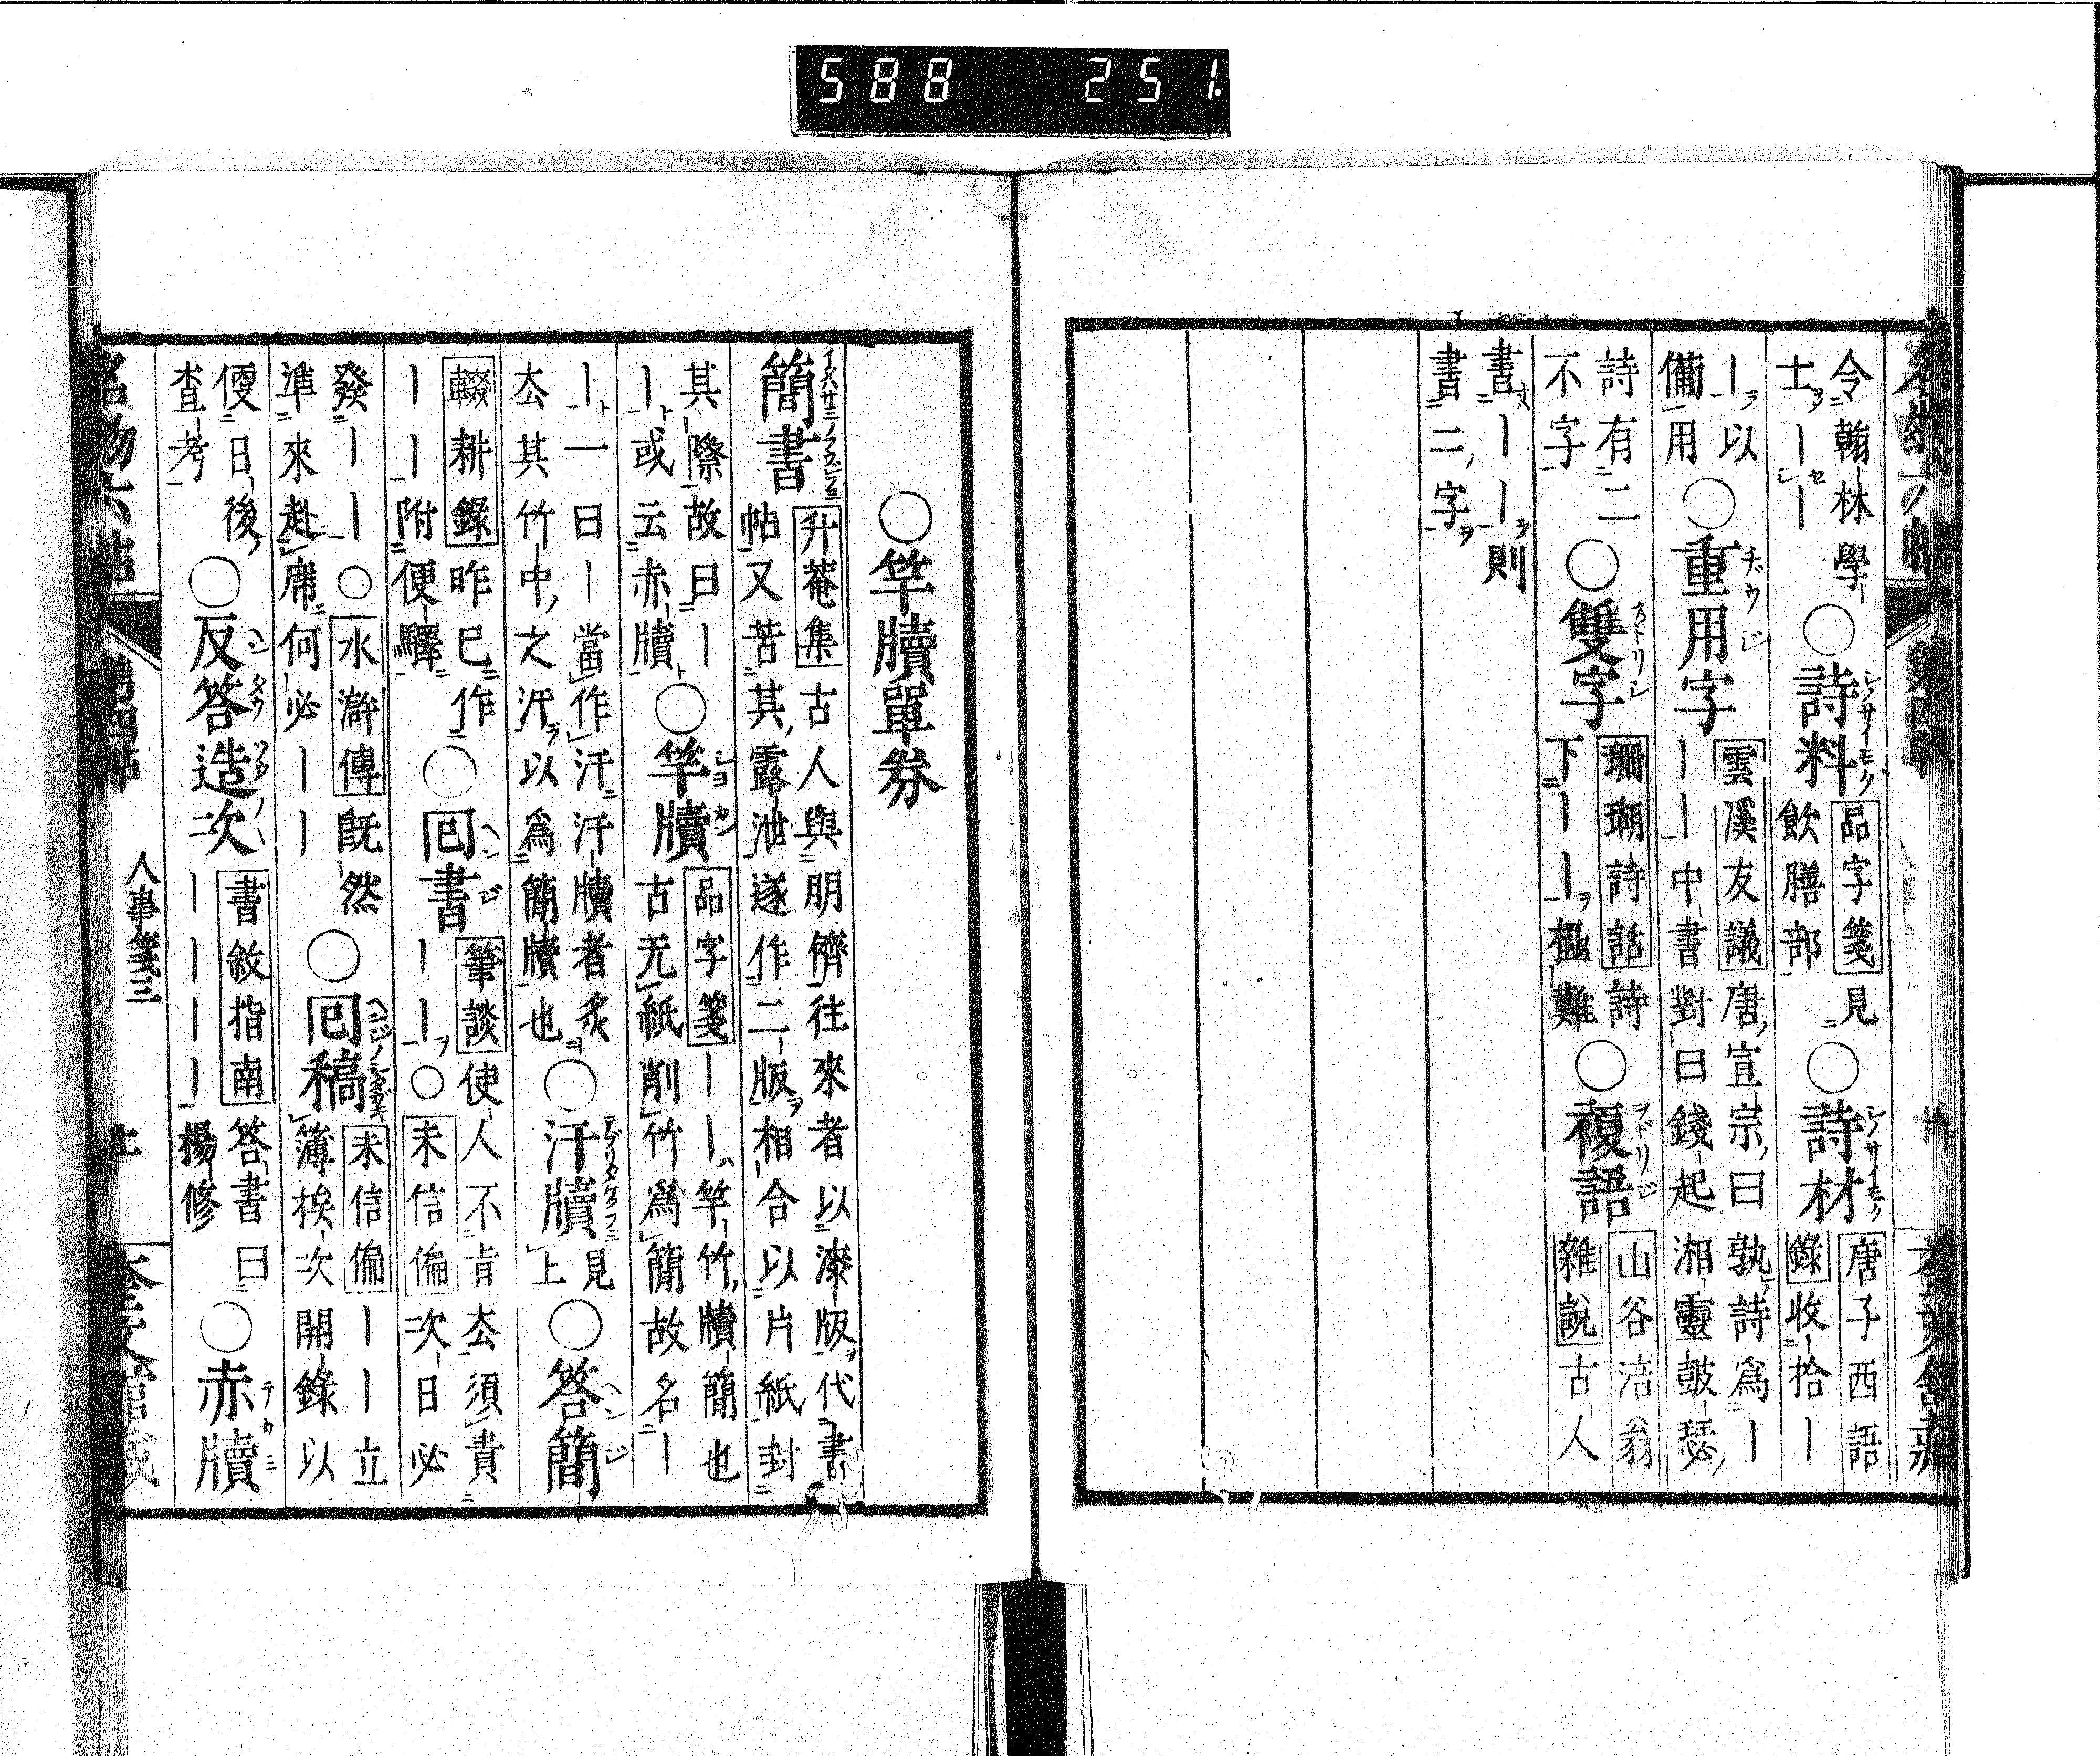 588 251
令翰林學
士｜｜
○詩料
品字箋見
飲膳部
○詩材
唐子西語
錄收拾｜
｜以
備用
○重用字
雲溪友議唐宣宗曰孰詩爲｜
｜｜中書對曰錢起湘靈鼓瑟
詩有二
不字
○雙字
珊瑚詩話詩
下｜｜極難
○複語
山谷涪翁
雜說古人
書｜｜則
書二字
○竿牘單券
簡書
升菴集古人與朋儕往來者以漆版代書
帖又苦其露泄遂作二版相合以片紙封
其際故曰｜
｜或云赤牘
○竿牘
品字箋｜｜竿竹牘簡也
古无紙削竹爲簡故名｜
｜一曰｜當作汗汗牘者炙
厺其竹中之汗以爲簡牘也
○汗牘
見
上
○答簡
輟耕錄昨已作
｜｜附便驛
○回書
筆談使人不肯厺須責
｜｜○未信編次日必
發｜｜○水滸傳旣然
準來赴席何必｜｜
○回稿
未信編｜｜立
簿挨次開錄以
便日後
查考
○反答造次
書敘指南答書曰
｜｜｜｜揚修
○赤牘
名物六帖 第四帖 人事箋三 奎文館藏